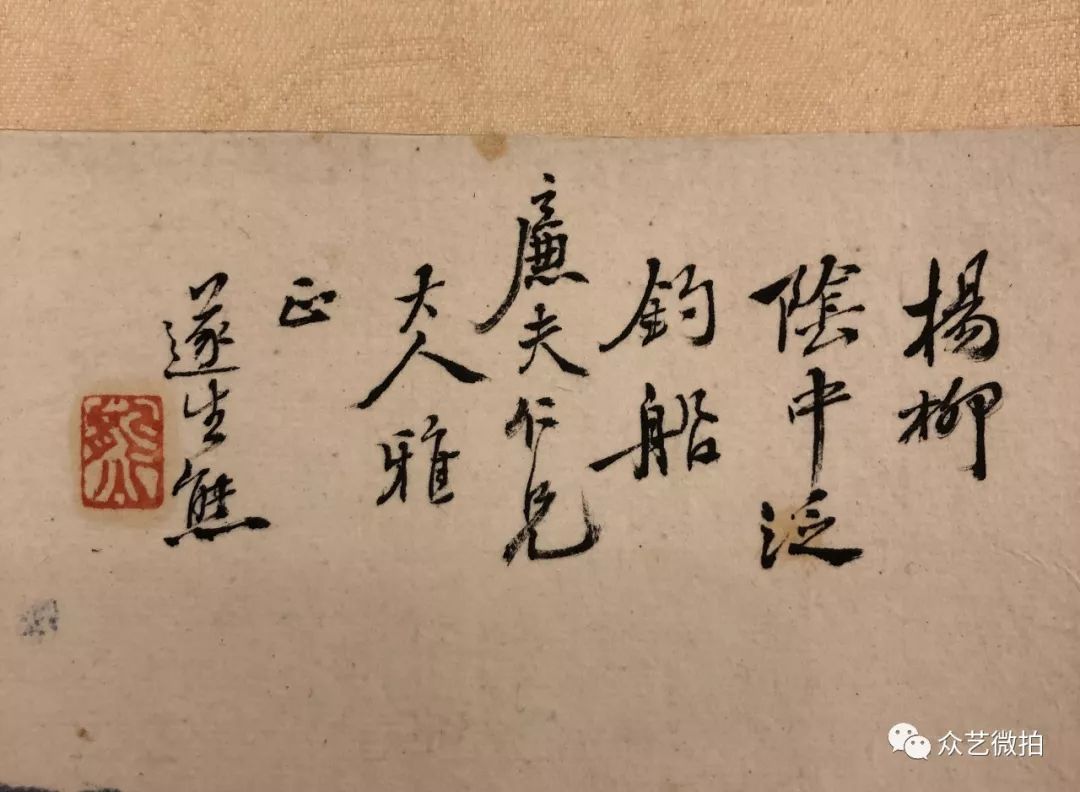 楊柳
陰中泛
釣船
廉夫仁兄
大人雅
正
遂生熊
众艺微拍